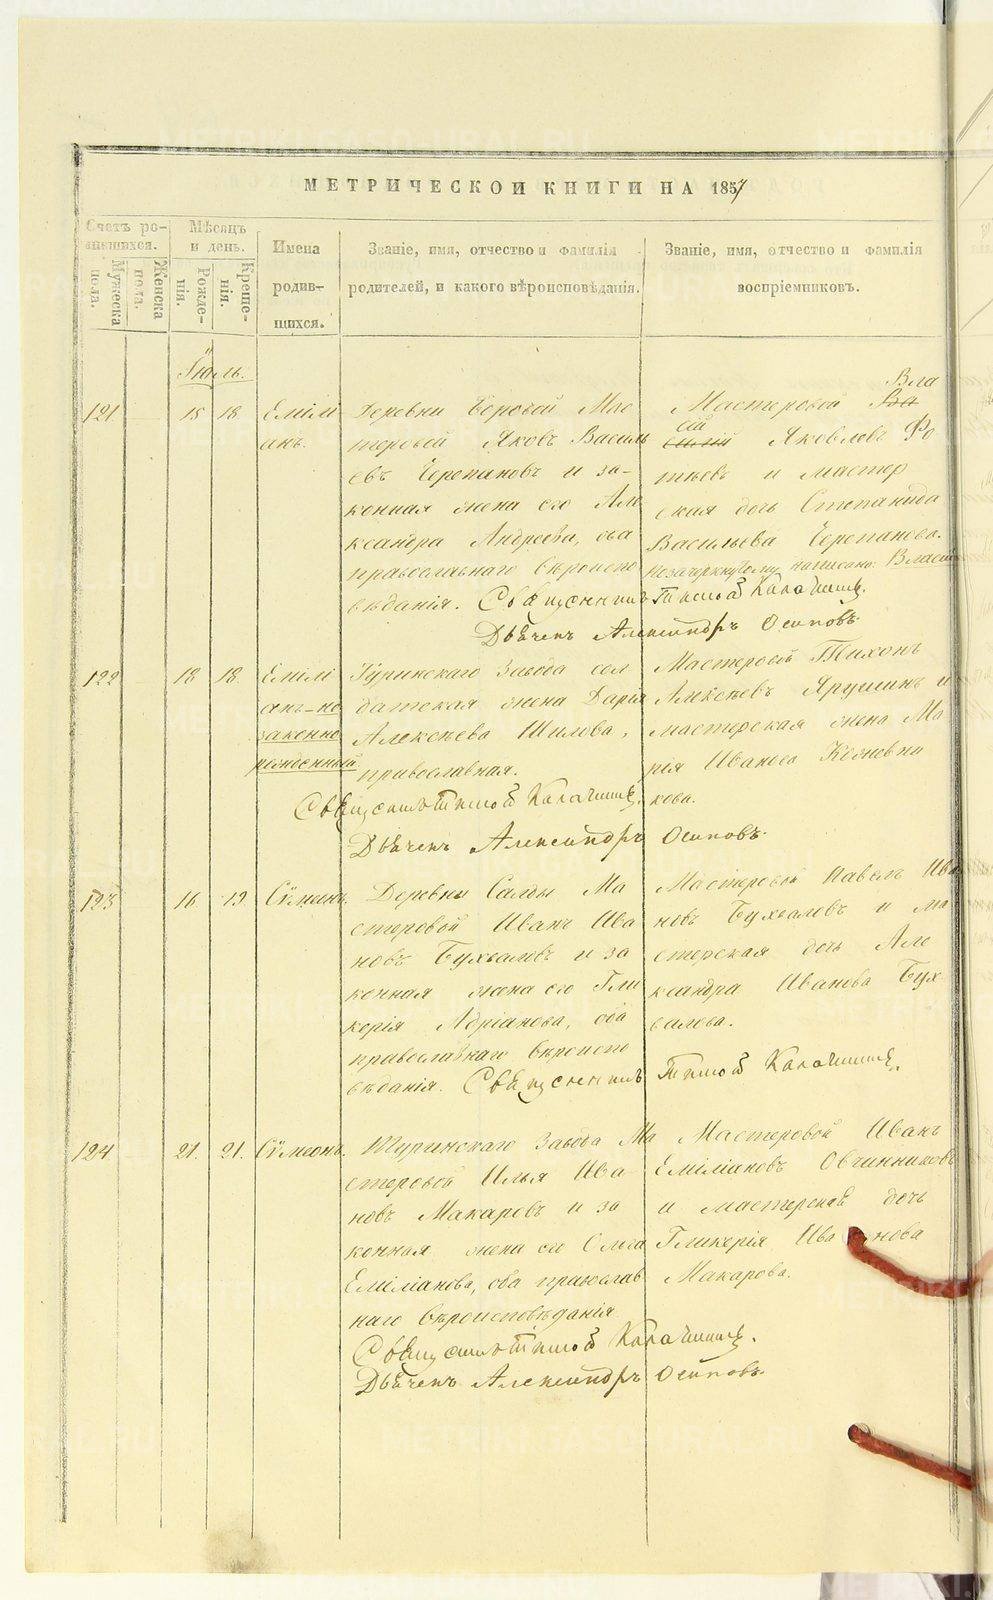 МЕТРИЧЕСКОЙ КНИГИ НА 1857
Счетъ родившихся.
Мужеска пола.
Женска пола.
Мѣсяцъ и день.
Рожденія.
Крещенія.
Имена родившихся.
Званіе, имя, отчество и фамилія родителей, и какого вѣроисповѣданія.
Званіе, имя, отчество и фамилія воспріемниковъ.
Іюль.
121
15 18
Емілі
анъ.
Деревни Боровой Мас
теровой Яковъ Василь
евъ Черепановъ и за-
конная жена его Але
ксандра Андреева, оба
православнаго вѣроиспо
вѣданія. Священникъ Тимоѳей
Дьячекъ Александръ Осиповъ.
Вла
Мастеровой Ва
сій силій Яковлевъ Фо
тѣевъ и мастер
ская дочь Степанида
Васильева Черепанова.
По зачеркнутому написано: Власій
122
18 18.
Емілі
анъ-не
законно
рожденный.
Туринскаго Завода сол
датская жена Дарія
Алексѣева Шилова,
православная.
Священникъ Тимоѳей
Дьячекъ Александръ Осиповъ.
Мастеровой Тихонъ
Алексѣевъ Ярушинъ и
мастерская жена Ма
рія Иванова Кожевни
кова.
123
16 19
Сімеонъ.
Деревни Салды Ма
стеровой Иванъ Ива
новъ Бухваловъ и за
конная жена его Гли
керія Адріанова, оба
православнаго вѣроиспо
вѣданія. Священникъ Тимоѳей
Мастеровой Павелъ Ива
новъ Бухваловъ и ма
стерская дочь Але
ксандра Иванова Бух
валова.
124
21. 21.
Сімеонъ.
Туринскаго Завода Ма
стеровой Илья Ива
новъ Макаровъ и за
конная жена его Ольга
Еміліанова, оба православ
наго вѣроисповѣданія
Священникъ Тимоѳей
Дьячекъ Александръ Осиповъ.
Мастеровой Иванъ
Еміліановъ Овчинниковъ
и мастерская дочь
Гликерія Иванова
Макарова.
METRIKI.GASO-URAL.RU